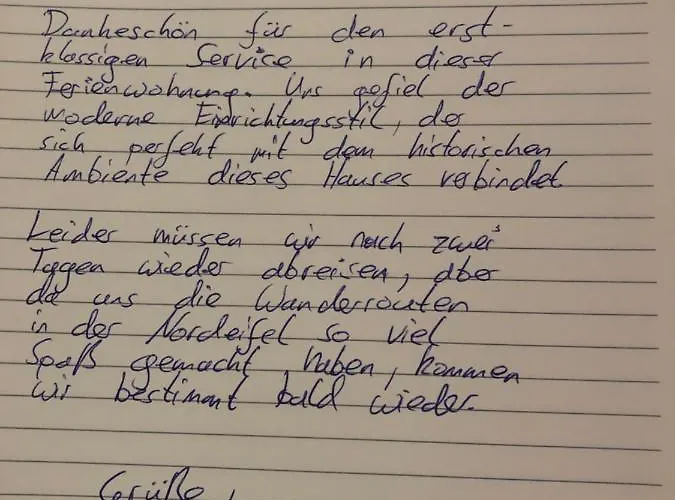 Dankeschön für den erst-
klassigen Service in dieser
Ferienwohnung. Uns gefiel der
moderne Einrichtungsstil, der
sich perfekt mit dem historischen
Ambiente dieses Hauses verbindet.
Leider müssen wir nach zwei
Tagen wieder abreisen, aber
da uns die Wanderrouten
in der Nordeifel so viel
Spaß gemacht haben, kommen
wir bestimmt bald wieder.
Grüße,